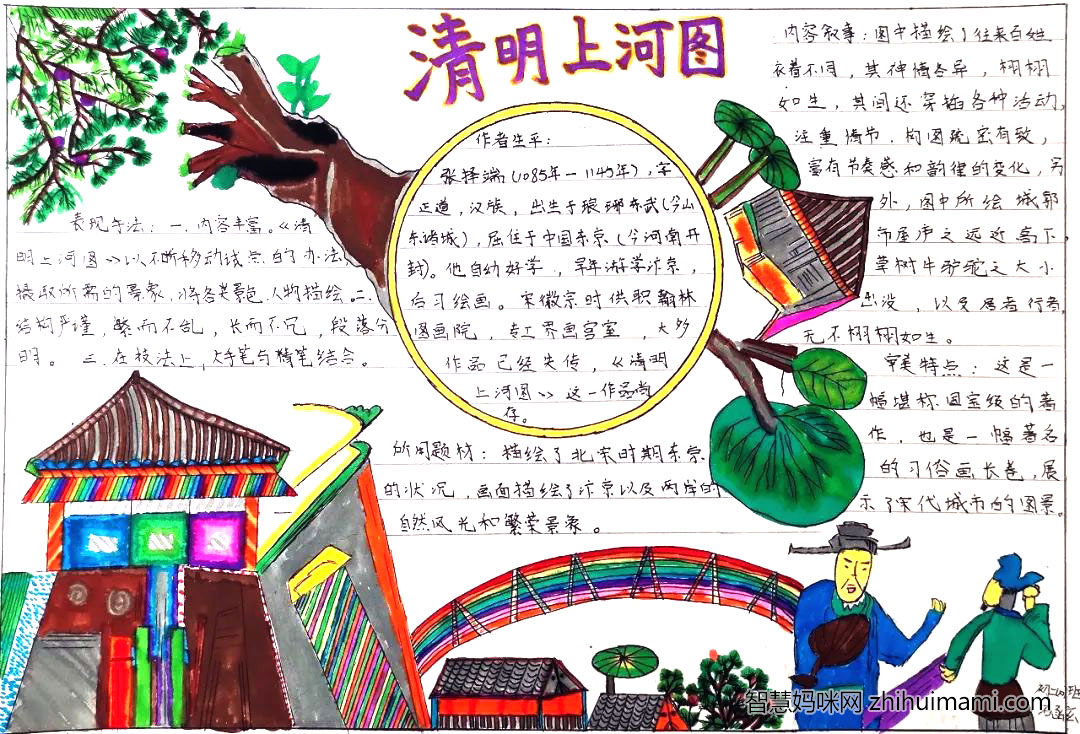 清明上河图
作者生平：
张择端(1085年－1145年)，字
正道，汉族，出生于琅琊东武(今山
东诸城)，居住于中国东京(今河南开
封)。他自幼好学，早年游学汴京，
后习绘画。宋徽宗时供职翰林
图画院，专工界画宫室，大多
作品已经失传，《清明
上河图》这一作品尚
存。
表现手法：一、内容丰富。《清
明上河图》以不断移动视点的办法
摄取所需的景象，将各类景色、人物描绘。二、
结构严谨，繁而不乱，长而不冗，段落分
明。三、在技法上，大手笔与精笔结合。
所用题材：描绘了北宋时期东京
的状况，画面描绘了汴京以及两岸的
自然风光和繁荣景象。
内容叙事：图中描绘了往来百姓
衣着不同，其神情各异，栩栩
如生，其间还穿插各种活动，
注重情节，构图疏密有致，
富有节奏感和韵律的变化，另
外，图中所绘城郭
市屋庐之远近高下，
草树牛驴驼之大小
出没，以及居者行者，
无不栩栩如生。
审美特点：这是一
幅堪称国宝级的著
作，也是一幅著名
的习俗画长卷，展
示了宋代城市的图景。
智慧妈咪网 zhihuimami.com